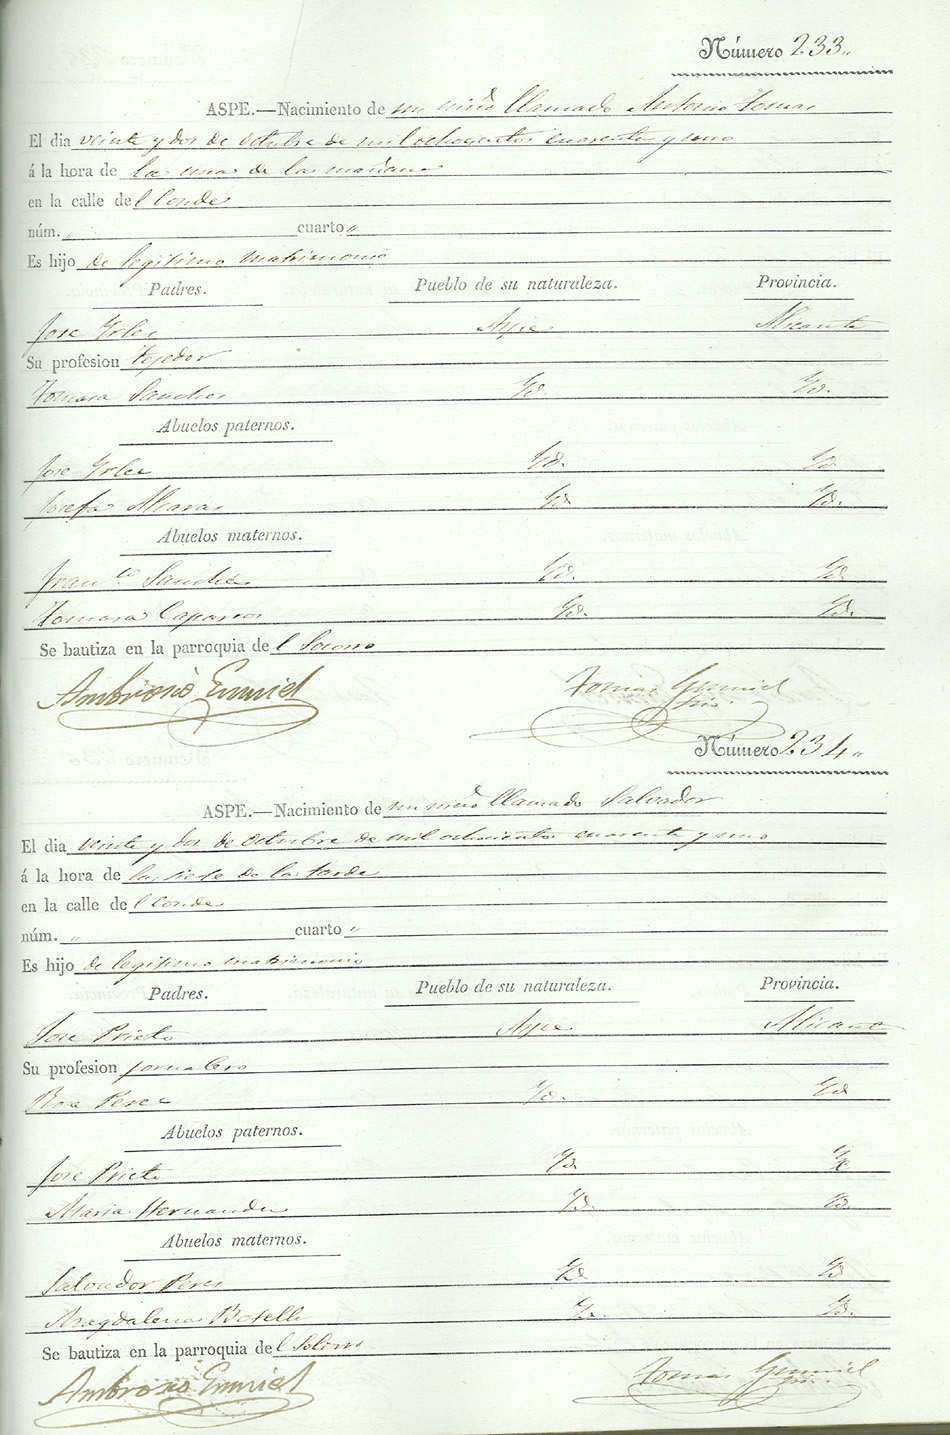 Número 233.
ASPE.—Nacimiento de un niño llamado Antonio Tomas
El dia veinte y dos de octubre de mil ochocientos cuarenta y uno
á la hora de la una de la mañana
en la calle del Conde
núm. " cuarto "
Es hijo de legitimo matrimonio
Padres. Pueblo de su naturaleza. Provincia.
Jose Yrles Aspe Alicante
Su profesion Tejedor
Tomasa Sanches Yd. Yd.
Abuelos paternos.
Jose Yrles Yd. Yd.
Josefa Alcaras Yd. Yd.
Abuelos maternos.
Fran.co Sanches Yd. Yd.
Tomasa Caparros Yd. Yd.
Se bautiza en la parroquia del Socorro
Ambrosio Tomas
Número 234.
ASPE.—Nacimiento de un niño llamado Salvador
El dia veinte y dos de octubre de mil ochocientos cuarenta y uno
á la hora de la siete de la tarde
en la calle del Conde
núm. " cuarto "
Es hijo de legitimo matrimonio
Padres. Pueblo de su naturaleza. Provincia.
Jose Prieto Aspe Alicante
Su profesion jornalero
Rosa Peres Yd. Yd
Abuelos paternos.
Jose Prieto Yd. Yd
Maria Hernandes Yd. Yd.
Abuelos maternos.
Salvador Peres Yd Yd
Magdalena Botella Yd. Yd.
Se bautiza en la parroquia del Socorro
Ambrosio Tomas